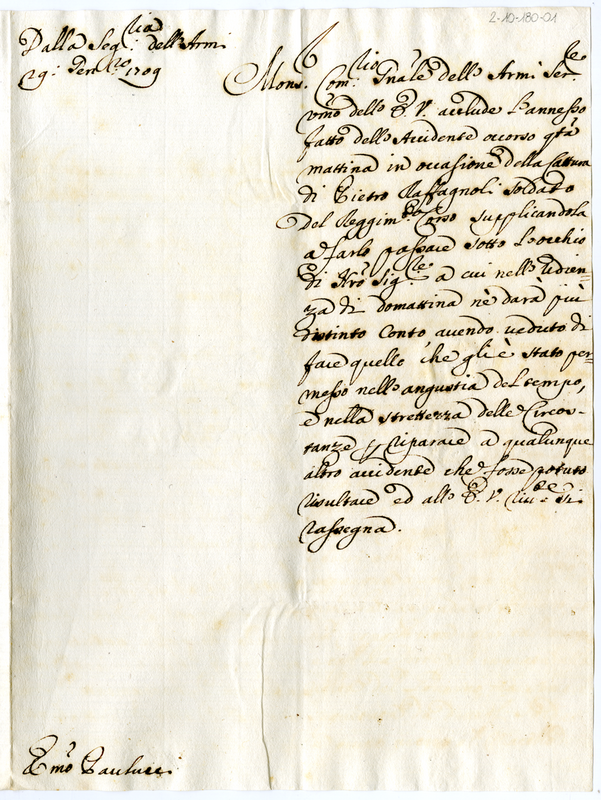 2-10-180-01
Dalla Seg.lia dell'Armi
29: Gen.ro 1709
Mons.r Com.lio Gn̄ale dell'Armi Ser.e
vm̄o dell'E. V. acclude l'annesso
fatto dell'Accidente occorso q̄ta
mattina in occasione della Cattura
di Pietro Raffagnoli soldato
del Reggim.to Corso supplicandola
a farlo passare sotto l'occhio
di Nrō Sig.re a cui nell'Udien-
za di domattina nè darà più
distinto Conto, avendo veduto di
fare quello che gli è stato per-
messo nell'angustia del tempo,
e nella strettezza delle Circos-
tanze p riparare a qualunque
altro accidente che fosse potuto
risultare ed all'E. V. riu.te si
rassegna.
Em̄o Paulucci